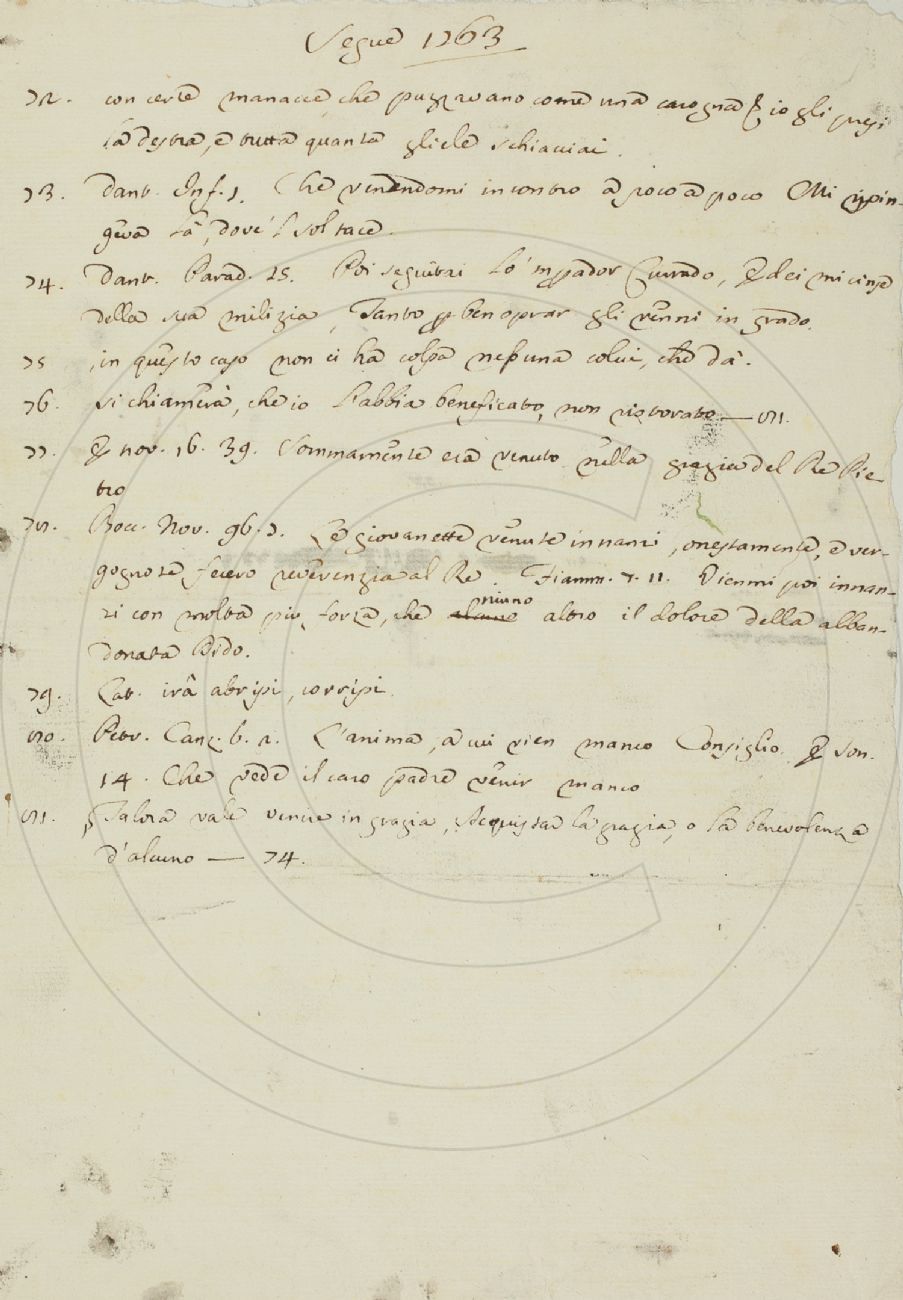 Segue 1763
72. con certe manacce, che puzzavano come una carogna & io gli presi
la destra, e tutta quanta gliele schiacciai.
73. Dant. Inf. 1. Che venendomi incontro a poco a poco Mi ripin-
geva là, dove 'l sol tace.
74. Dant. Parad. 15. Poi seguitai lo 'mpador Currado, & el ei mi cinse
della sua milizia, Tanto p ben oprar gli venni in grado.
75 in questo caso non ci ha colpa nessuna colui, che dà.
76. si chiamerà, che io l'abbia beneficato, non ristorato — 81.
77. & nov. 16. 39. Sommamente era venuto nella grazia del Re Pie-
tro
78. Bocc. Nov. 96. 7. Le giovanette venute innanzi, onestamente, e ver-
gognose fecero reverenzia al Re. Fiamm. 7. 11. Viemmi poi innan-
zi con molta più forza, che niuno altro il dolore della abban-
donata Dido.
79. Lat. irâ abripi, corripi.
80. Petr. Canz. 6. 2. L'anima, a cui vien manco Consiglio. & Son.
14. Che vede il caro padre venir manco
81. Talora vale venire in grazia, Acquistar la grazia, o la benevolenza
d'alcuno — 74.